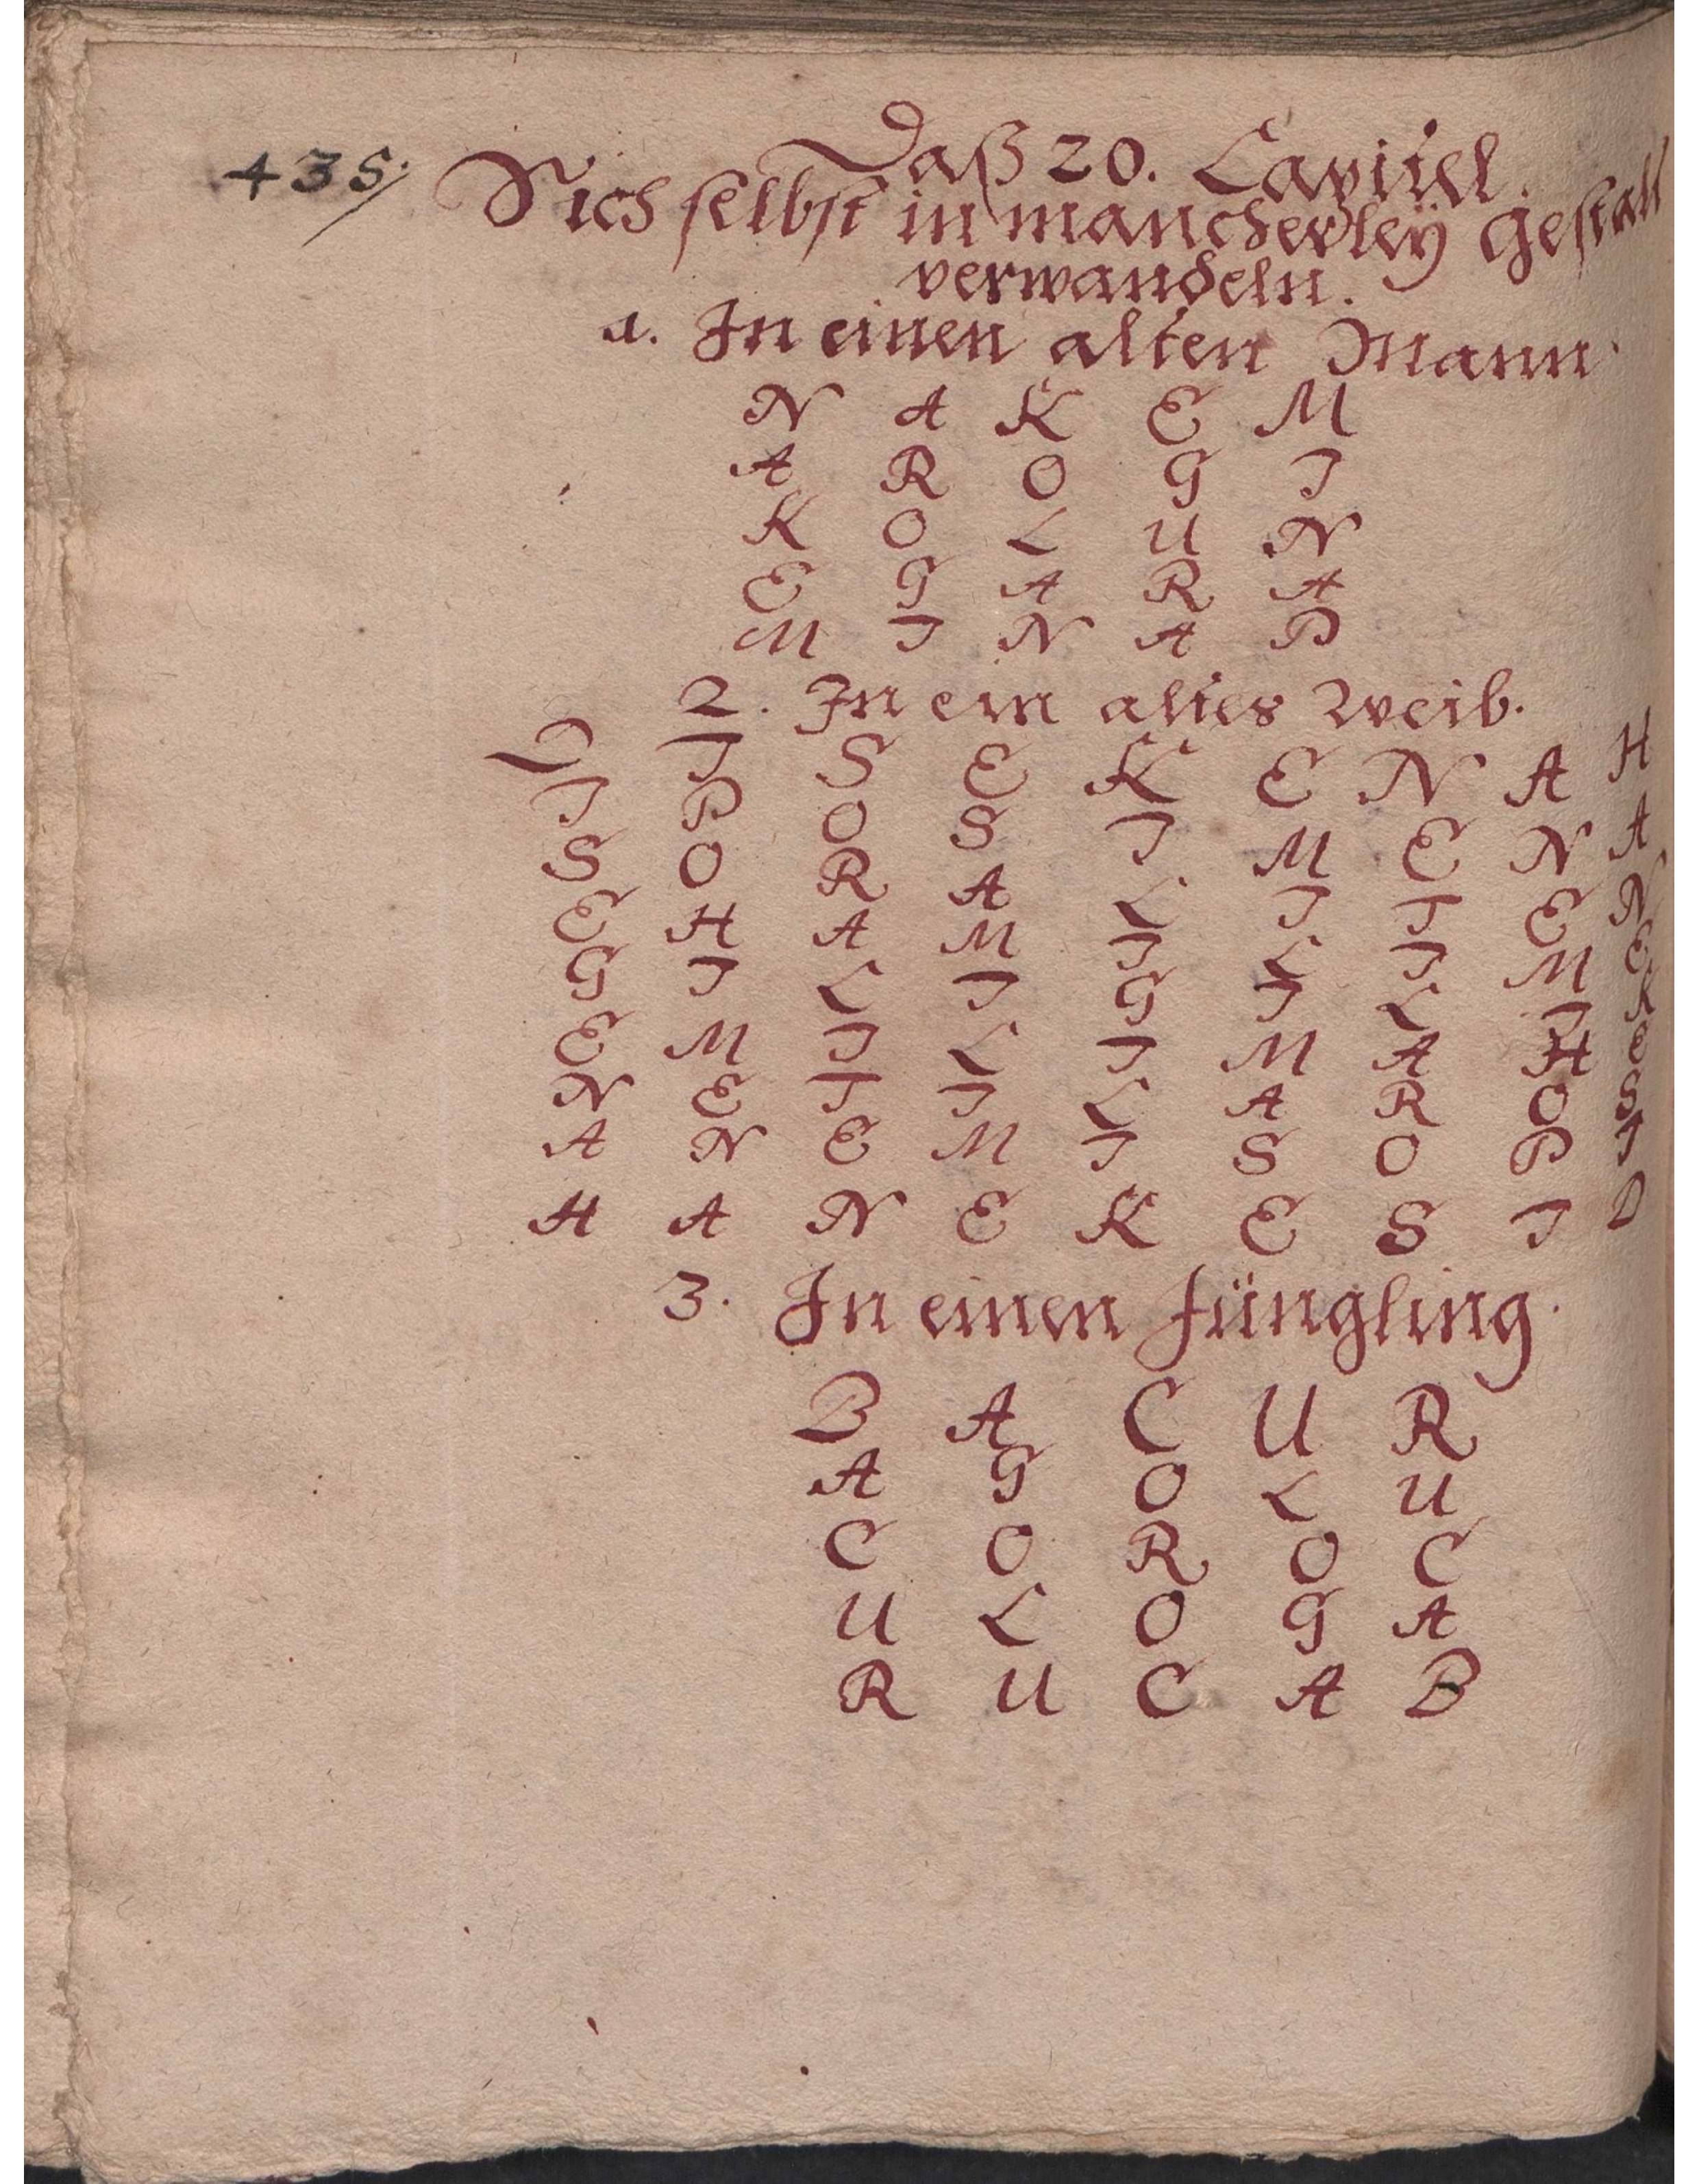 435.
Daß 20. Capittel.
Sich selbst in mancherley gestalt
verwandeln.
1. In einen alten Mann.
N A K E M
A R O G I
K O L U N
E G A R A
M I N A P
2. In ein altes Weib.
D I S E K E N A H
I P O S I M E N A
S O R A L I I E N
E H A M I L I M E
G I L I G I L I K
E M I L I M A H E
N E I I L A R O S
A N E M I S O P I
H A N E K E S I D
3. In einen Jüngling.
B A C U R
A G O L U
C O R O C
U L O G A
R U C A B